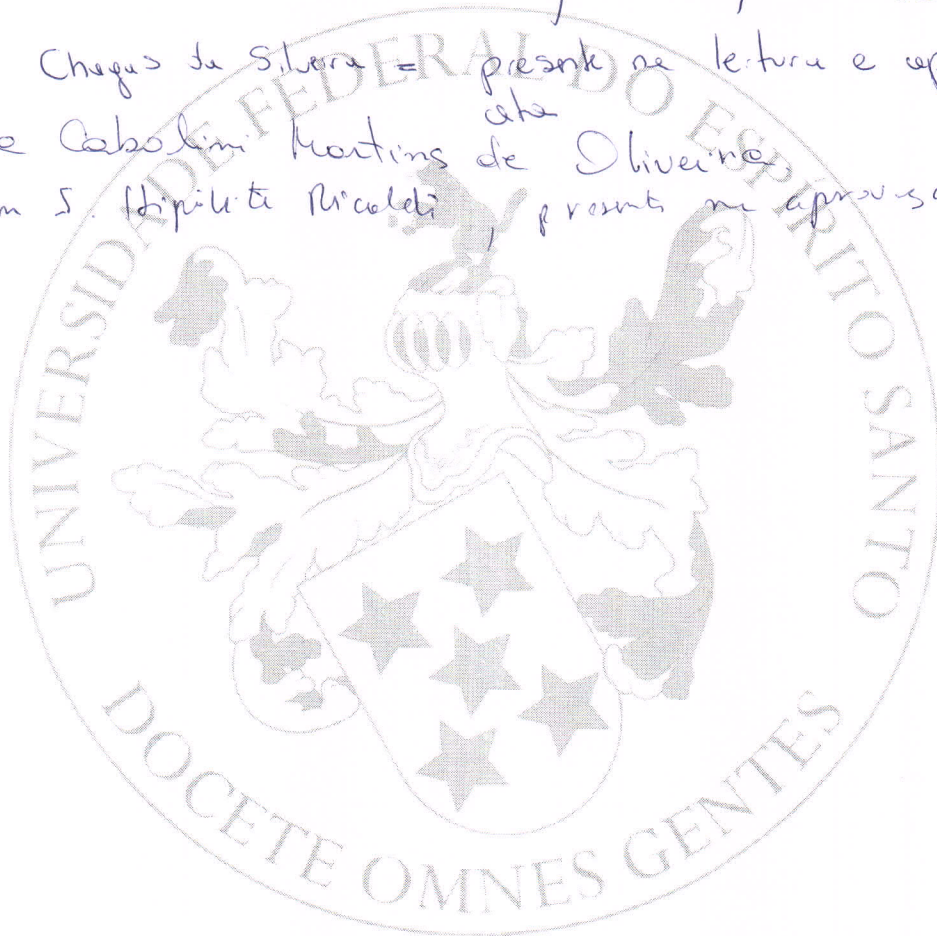 Chagas da Silveira = presente na leitura e
ata
Martins de Oliveira.
S. Hipólito Ricaldi, presente na
UNIVERSIDADE FEDERAL DO ESPÍRITO SANTO
DOCETE OMNES GENTES